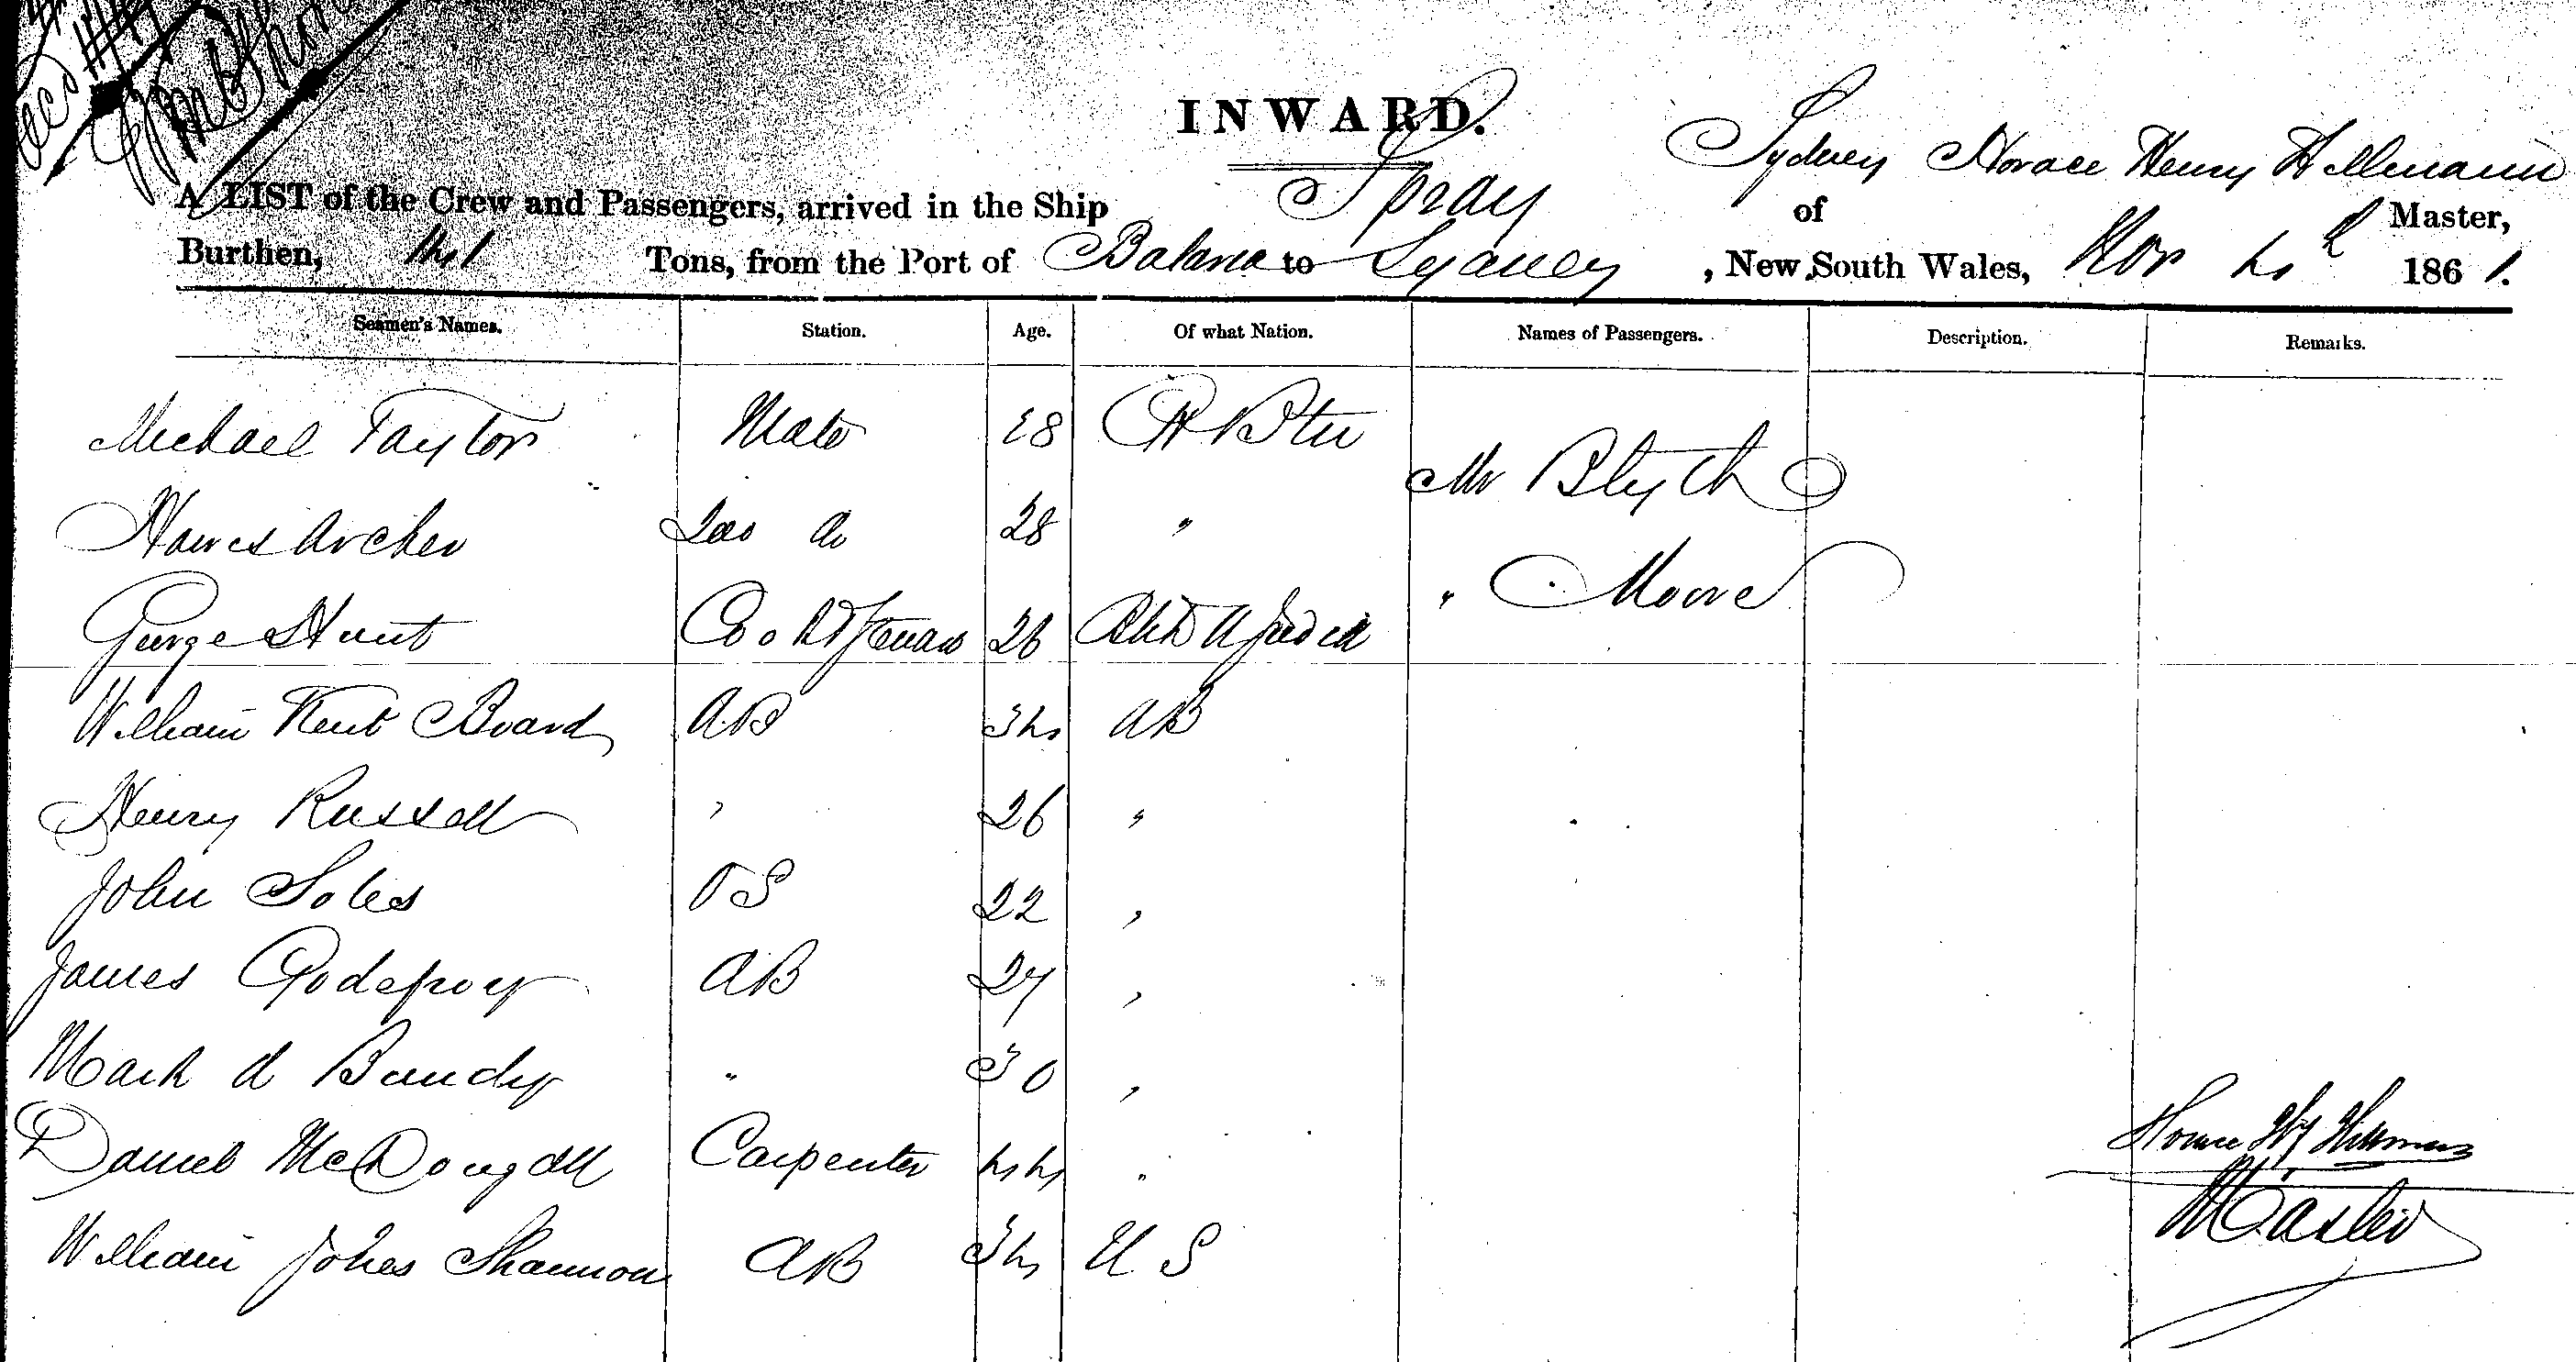 INWARD.
Spray Sydney Horace Henry Hillmann
A LIST of the Crew and Passengers, arrived in the Ship of Master,
Burthen, 141 Tons, from the Port of Batavia to Sydney, New South Wales, Nov 4th 1861.
Seamen's Names. Station. Age. Of what Nation. Names of Passengers. Description. Remarks.
Michael Taylor Mate 28
Mr Blyth
Archer 2nd do 28 "
" Moore
George Hunt Cook & Steward 26
William Kent Board AB 34
Henry Russell " 26 "
John Soles OS 22 "
James Godefroy AB 27 "
Mark A Bundy " 30 "
Daniel McDougall Carpenter 44 "
Horace Hy Hillmann
Master
William Johes Shannon AB 34 U S